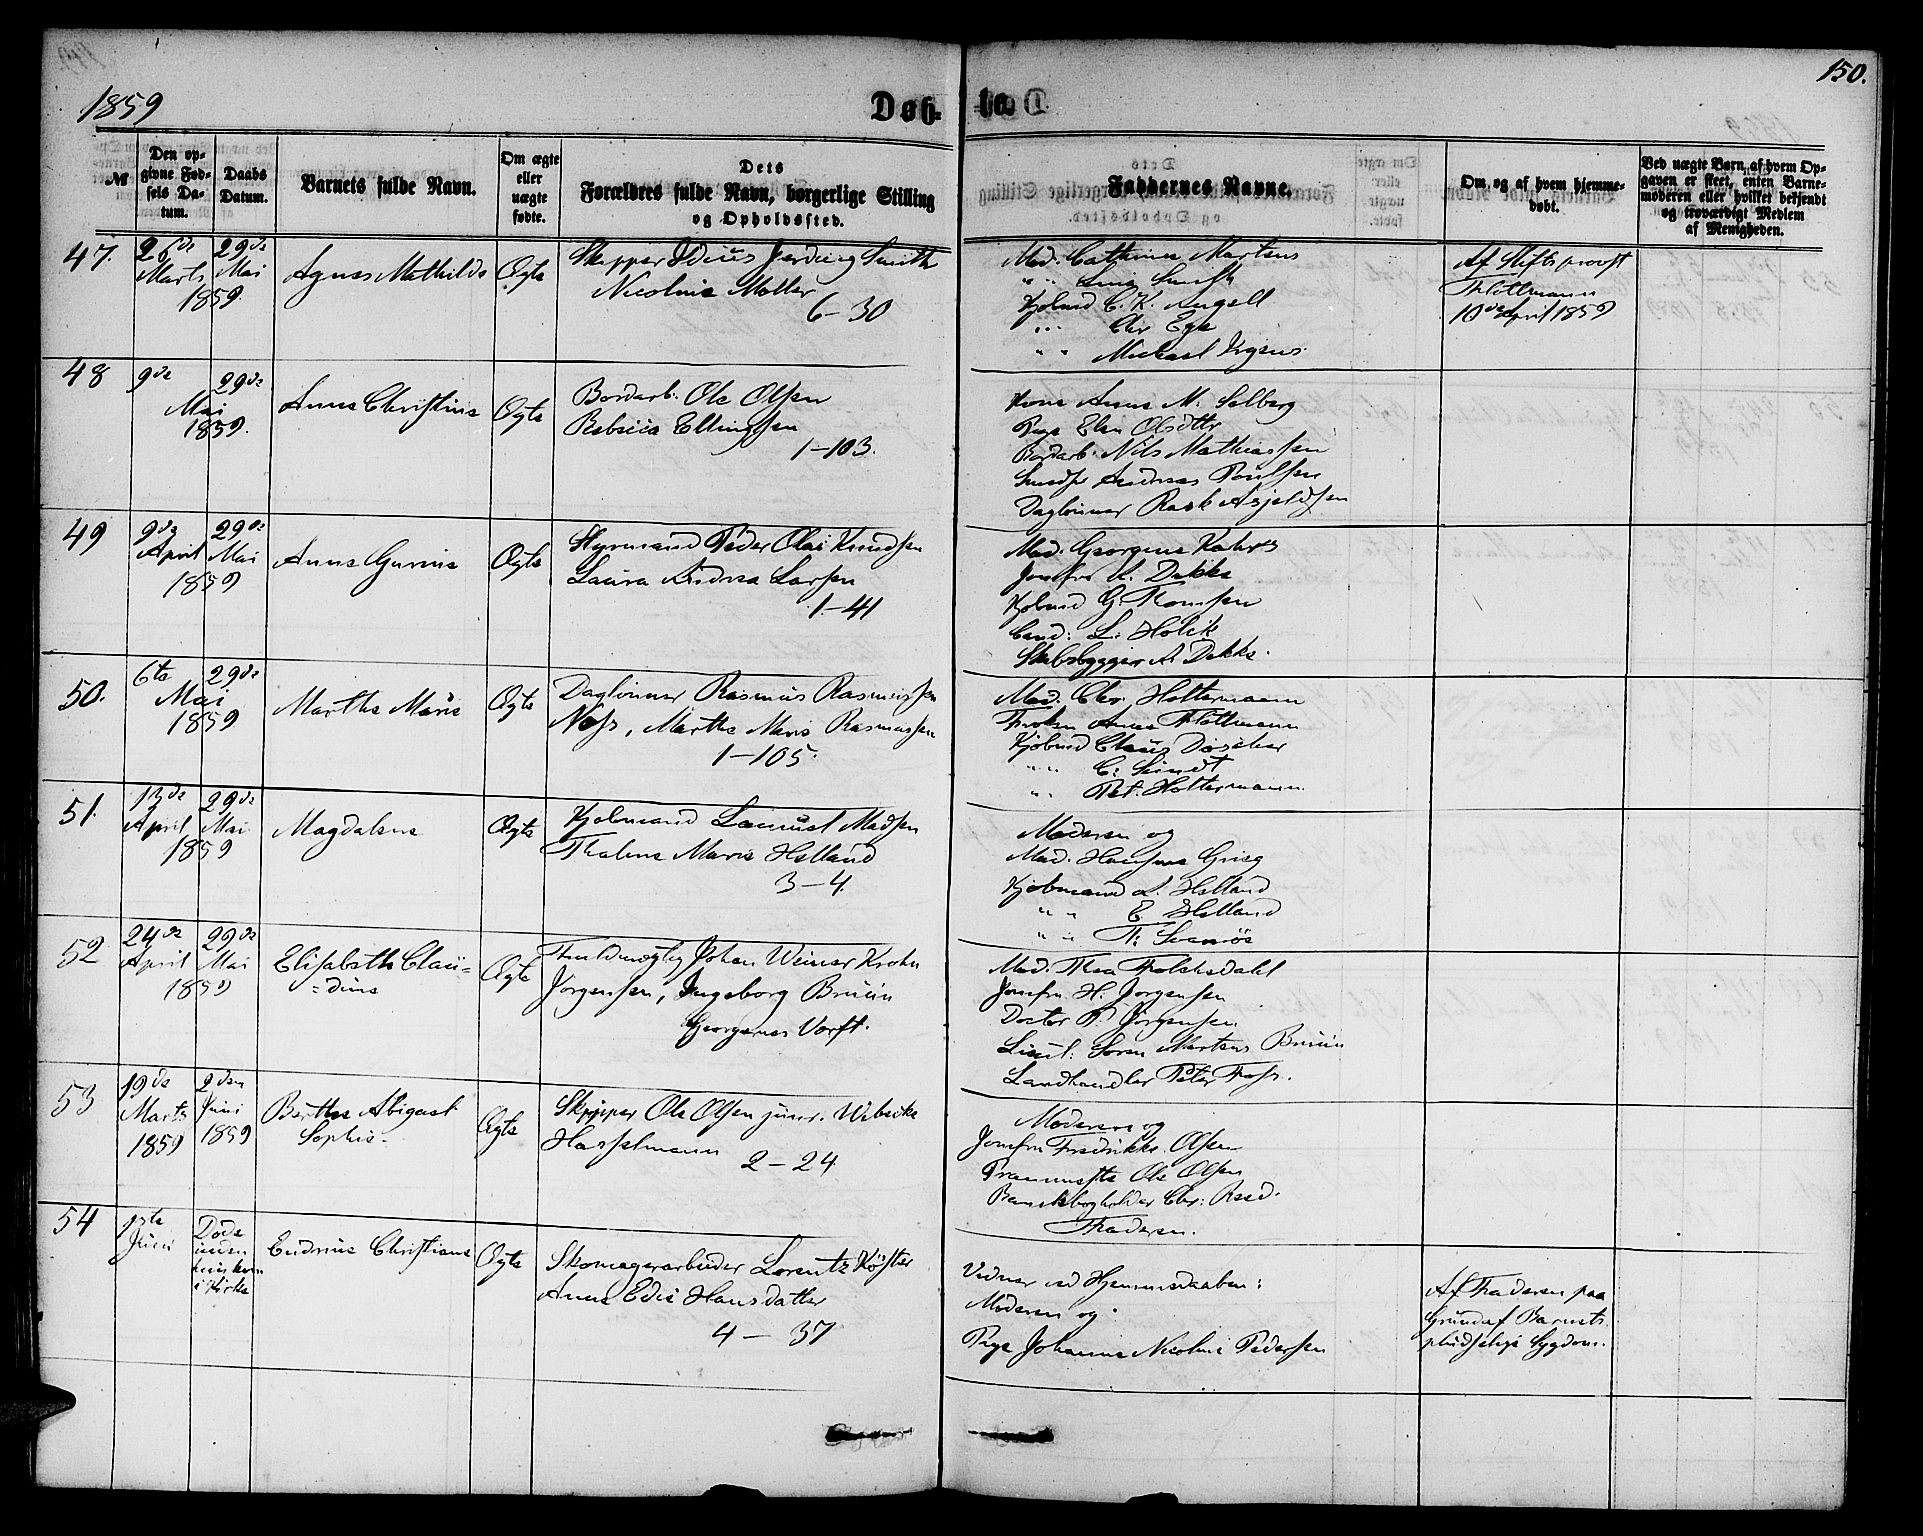 1859
Døb-
te.
150.
№
Den op-
givne Fød-
sels Da-
tum.
Daabs
Datum.
Barnets fulde Navn.
Om ægte
eller
uægte
fødte.
Dets
Forældres fulde Navn, borgerlige Stilling
og Opholdssted.
Faddernes Navne.
Om og af hvem hjemme-
døbt.
Ved uægte Børn, af hvem Op-
gaven er skeet, enten Barne-
moderen eller hvilket bekjendt
og troværdigt Medlem
af Menigheden.
47.
26de
Marts
1859.
29de
Mai
Agnes Mathilde
Ægte
Skipper Smith
Nicoline Møller
6-30
Mad. Cathrine Martens
" " Lina Smith
Kjøbmd C. K. Angell
" " Chr Ege
" " Michael Irgens.
Af Stiftsprovst
Flottmann
10de April 1859
48
9de
29de
Mai
1859.
Anne Christine
Ægte
Bordarb. Ole Olsen
Rebecca Ellingsen
1-103.
Kone Anne M. Solberg
Pige Elen Olsdttr
Bordarb. Nils Mathiassen
Andreas Poulsen
Daglønner Rask
49
9de
April
1859
29de
Mai
Anne Gurine
Ægte
Styrmand Peder Olai Knudsen
Laura Andrea Larsen
1-41
Mad. Georgine Kahrs
Jomfru A. Dekke
Kjøbmd G. Thomsen
Cand: L: Holck
Skibsbygger A. Dekke.
50.
6te
29de
Mai
1859
Marthe Marie
Ægte
Daglønner Rasmus Rasmussen
Næss, Marthe Marie Rasmussen
1-105.
Mad. Chr. Holtermann
Frøken Anna Flottmann
Kjøbmd Claus
" " C: Sundt
" " Pet. Holtermann.
51.
13de
April
1859
29de
Mai
Magdalene
Ægte
Kjøbmand Madsen
Thaline Marie Helland
3-4.
Moderen og
Mad. Hansine Grieg
Kjøbmand A. Helland
" " E Helland
" " T: Svanøe
52
24de
April
1859
29de
Mai
Elisabeth Clau-
=dine
Ægte
Fuldmægtig Johan Werner Krohn
Jørgensen, Ingeborg Bruun
Georgernes Værft.
Mad. Thea
Jomfru H. Jørgensen
Doctor P. Jørgensen
Lieut: Søren Martens Bruun
Landhandler Peter
53
19de
Marts
1859
2den
Juni
1859
Berthe Abigael
Sophie.
Ægte
Skipper Ole Olsen junr. Wibecke
Hasselmann
2-24
Moderen og
Jomfru Fredrikke Olsen
Ole Olsen
Bankbogholder Chr:
Faderen.
54
1ste
Juni
Døde
uden
i Kirke
Christiane
Ægte
Skomagerarbeider Lorentz Köster
Anne Edis Hansdatter
4-37
Vidner ved Hjemmedaaben:
Moderen og
Pige Johanne Nicoline Pedersen
Af Faderen paa
Grund af Barnets
pludselige Sygdom.